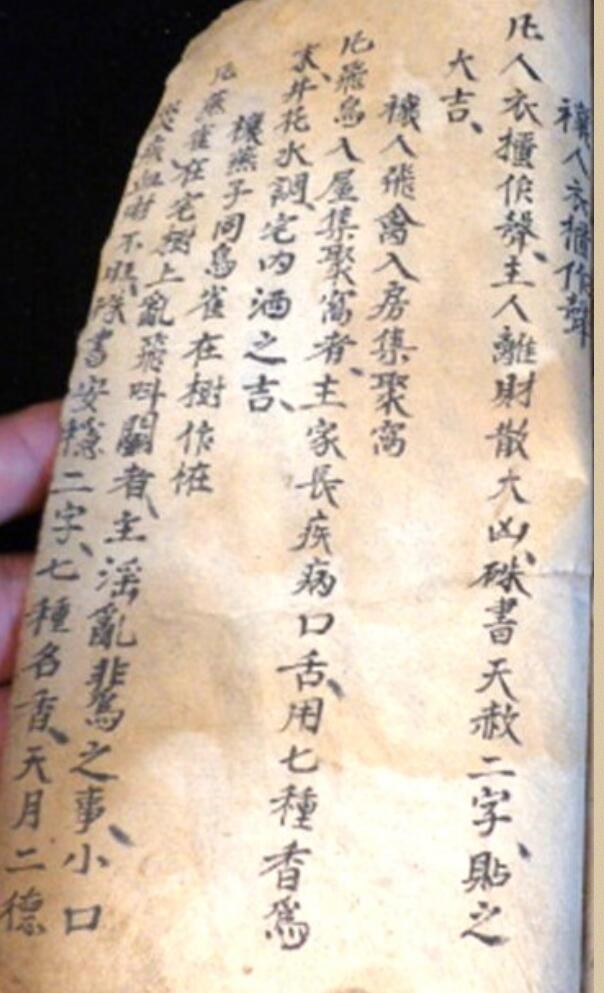 禳人衣櫃作聲
凡人衣櫃作聲、主人離財散大凶、硃書天赦二字、貼之
大吉、
禳人飛禽入房集聚窩
凡飛鳥入屋集聚窩者、主家長疾病口舌、用七種香爲
末、井花水調、宅內洒之吉、
禳燕子同鳥雀在樹作恠
凡燕雀在宅樹上亂飛叫鬭者、主滛亂非爲之事、小口
疾血財不旺、硃書安穩二字、七種名香、天月二德